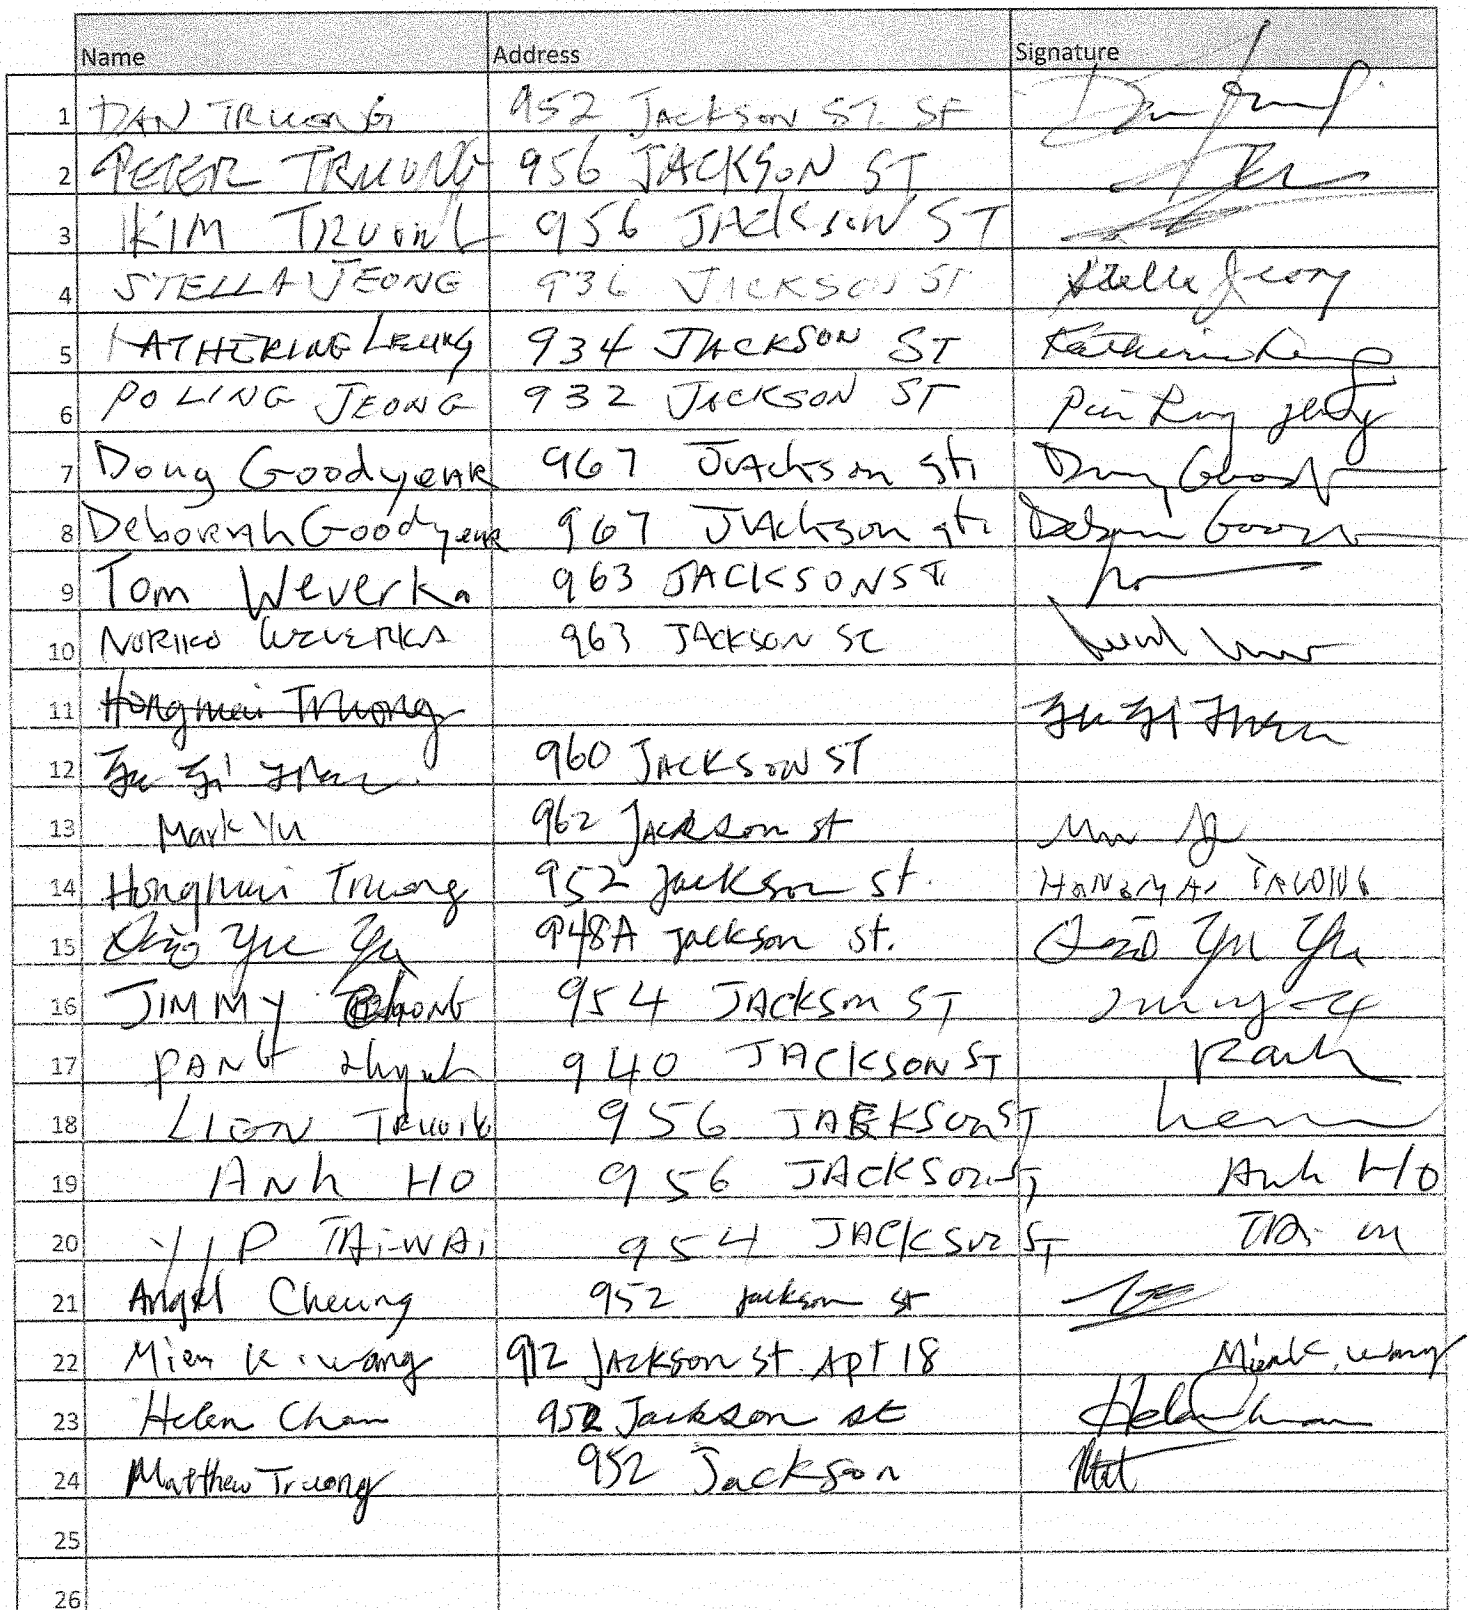 Name Address Signature
1 DAN TRUONG 952 JACKSON ST. SF
2 PETER TRUONG 956 JACKSON ST
3 KIM TRUONG 956 JACKSON ST
4 STELLA JEONG 936 JACKSON ST Stella Jeong
5 KATHERINE LEUNG 934 JACKSON ST Katherine Leung
6 PO LING JEONG 932 JACKSON ST
7 Doug GoodyeaR 967 JAckson st. Doug
8 DeboRAh GoodyeaR 967 JAckson st.
9 Tom Weverka 963 JACKSON ST.
10 NORIKO WEVERKA 963 JACKSON ST
11 Hongmai Truong
12 960 JACKSON ST
13 Mark Yu 962 JACkson st
14 Hongmai Truong 952 Jackson st. HONGMAI TRUONG
15 Yu 948A Jackson st. Yu
16 JIMMY 954 JACkSon ST
17 940 JACKSON ST
18 LIEN TRUONG 956 JACKSON ST
19 ANh HO 956 JACKSON ST Anh Ho
20 YIP TAi-WAi 954 JACKSON ST
21 Angel Cheung 952 Jackson st
22 Mien K. Wang 912 JACKson st. Apt 18 Mien K. Wang
23 Helen Chan 952 Jackson st Helen Chan
24 Matthew Truong 952 Jackson Matt
25
26